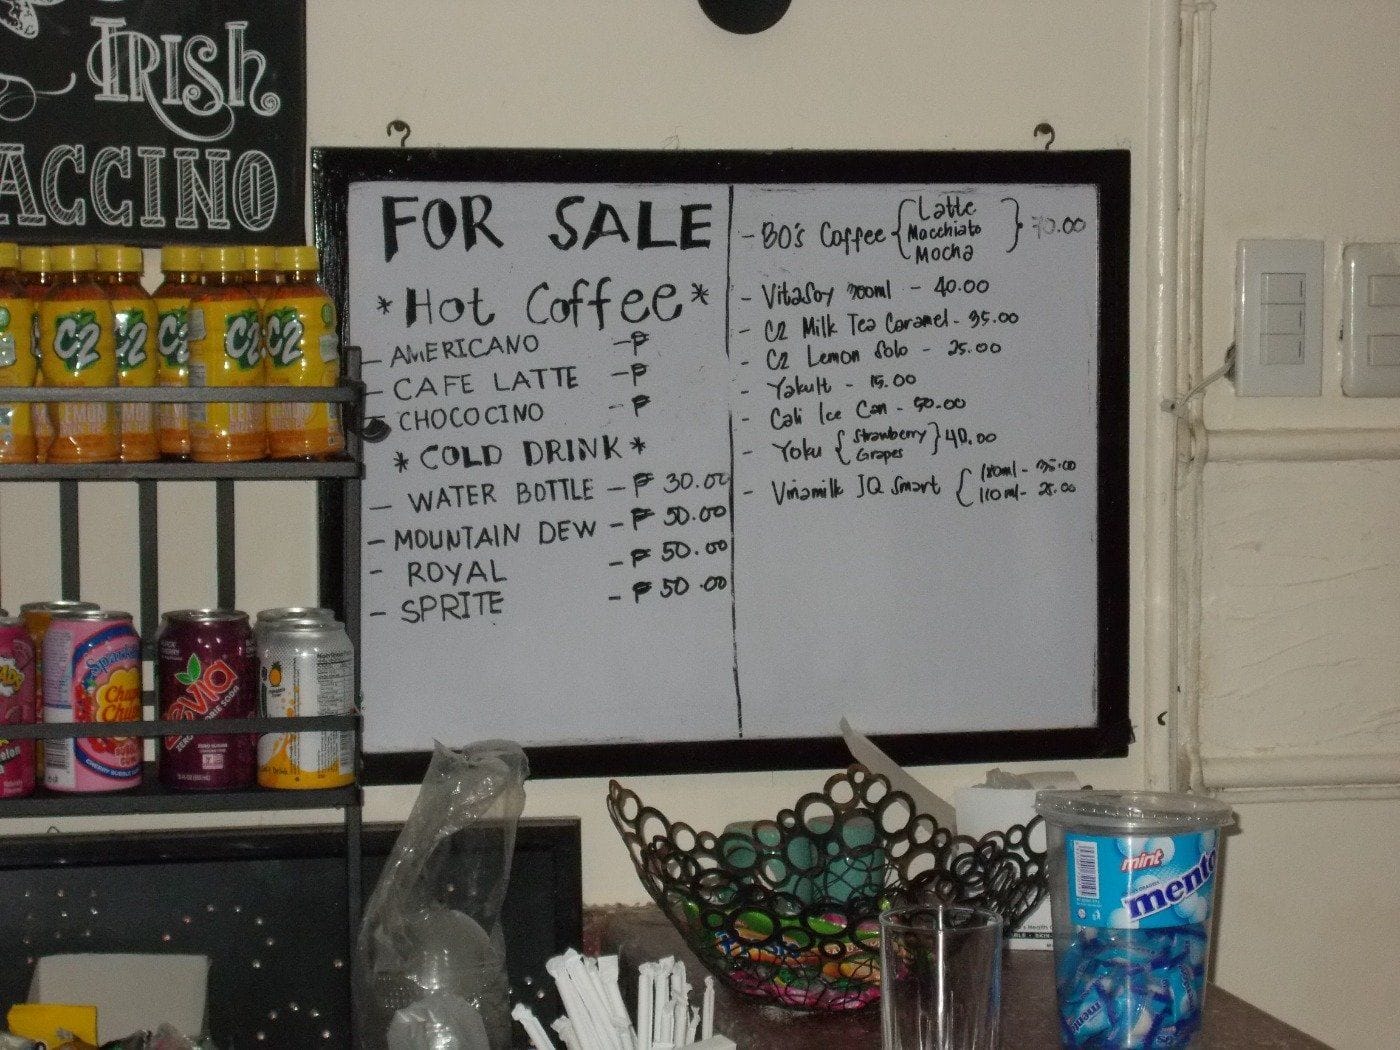 IRISh
ACCINO
FOR SALE
*Hot Coffee*
- AMERICANO -₱
- CAFE LATTE -₱
- CHOCOCINO -₱
*COLD DRINK*
- WATER BOTTLE -₱ 30.00
- MOUNTAIN DEW -₱ 50.00
- ROYAL -₱ 50.00
- SPRITE -₱ 50.00
- BO's Coffee { Latte
Macchiato
Mocha } 70.00
- Vitasoy 300ml - 40.00
- C2 Milk Tea Caramel - 35.00
- C2 Lemon Solo - 25.00
- Yakult - 15.00
- Cali Ice Can - 50.00
- Yoku { Strawberry
Grapes } 40.00
- Vinamilk IQ Smart { 180ml - 35.00
110ml - 25.00
C2
C2
C2
C2
C2
LEMON
LEMON
Sparkling
Chupa
Chups
CHERRY BUBBLE GUM
Zevia
ZERO SUGAR
mint
mentos